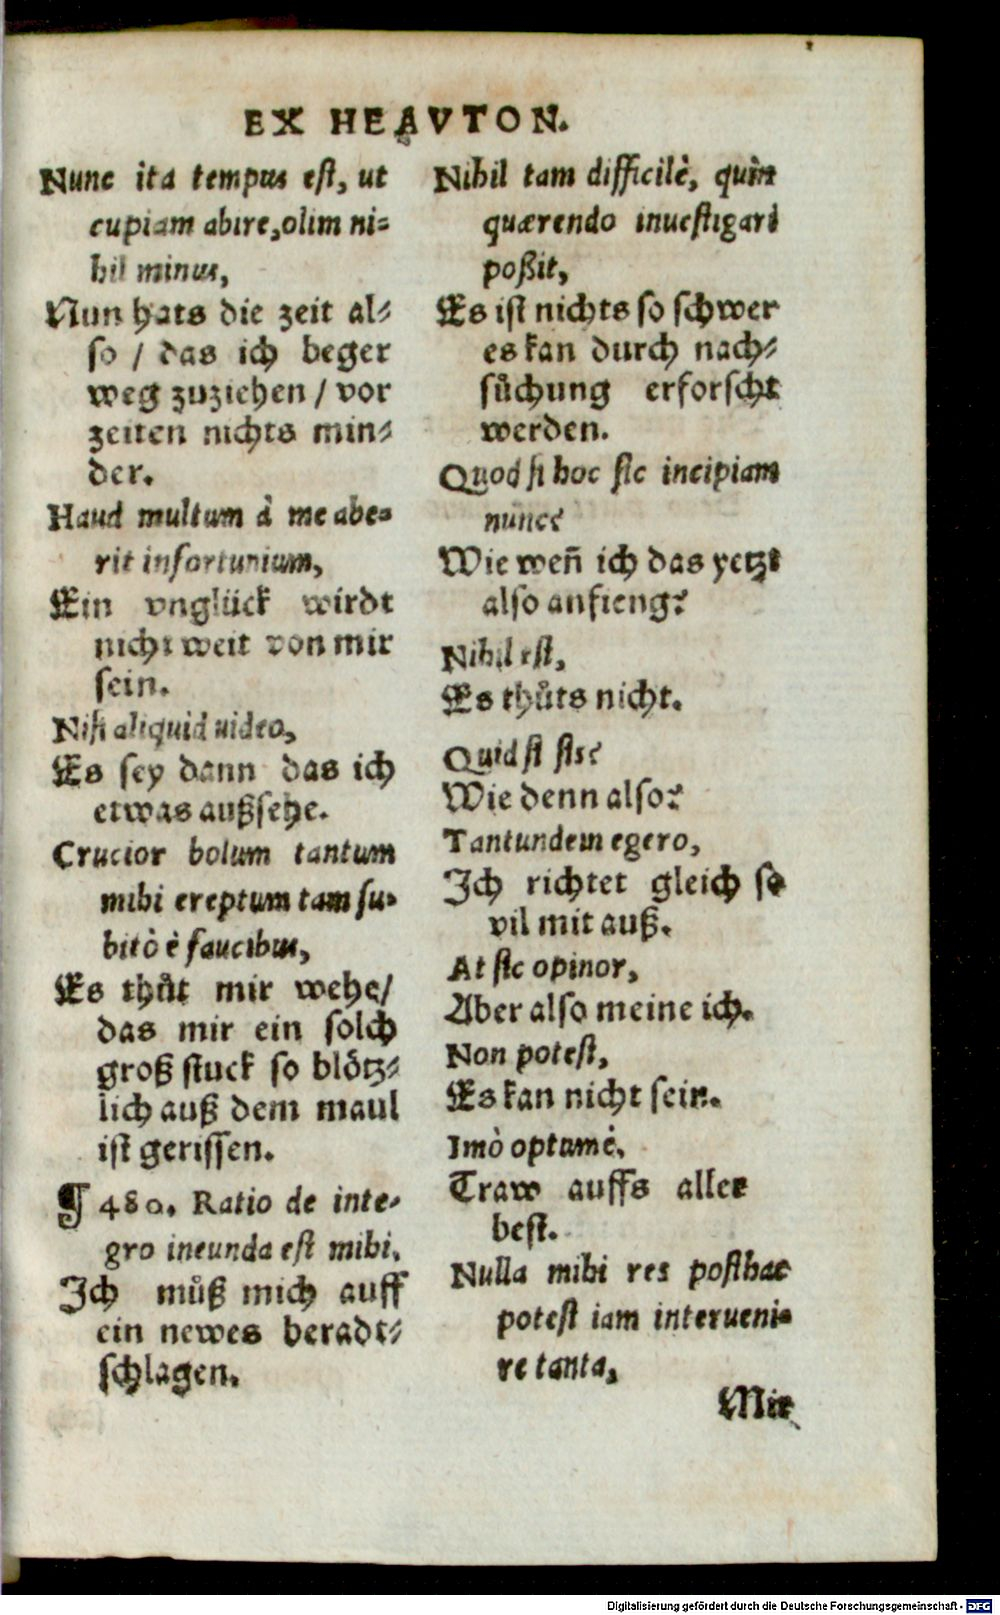 EX HEAVTON.
Nunc ita tempus est, ut
cupiam abire, olim ni-
hil minus,
Nun hats die zeit al-
so / das ich beger
weg zuziehen / vor
zeiten nichts min-
der.
Haud multum à me abe-
rit infortunium,
Ein vnglück wirdt
nicht weit von mir
sein.
Nisi aliquid video,
Es sey dann das ich
etwas außsehe.
Crucior bolum tantum
mihi ereptum tam su-
bitò è faucibus,
Es thůt mir wehe/
das mir ein solch
groß stuck so blötz-
lich auß dem maul
ist gerissen.
¶ 480. Ratio de inte-
gro ineunda est mihi.
Ich můß mich auff
ein newes beradt-
schlagen.
Nihil tam difficilè, quin
quærendo inuestigari
poßit,
Es ist nichts so schwer
es kan durch nach-
sůchung erforscht
werden.
Quod si hoc sic incipiam
nunc?
Wie weñ ich das yetzt
also anfieng?
Nihil est,
Es thůts nicht.
Quid si sic?
Wie denn also?
Tantundem egero,
Ich richtet gleich so
vil mit auß.
At sic opinor,
Aber also meine ich.
Non potest,
Es kan nicht sein.
Imò optumè.
Traw auffs aller
best.
Nulla mihi res posthac
potest iam interueni-
re tanta,
Mir
Digitalisierung gefördert durch die Deutsche Forschungsgemeinschaft - DFG